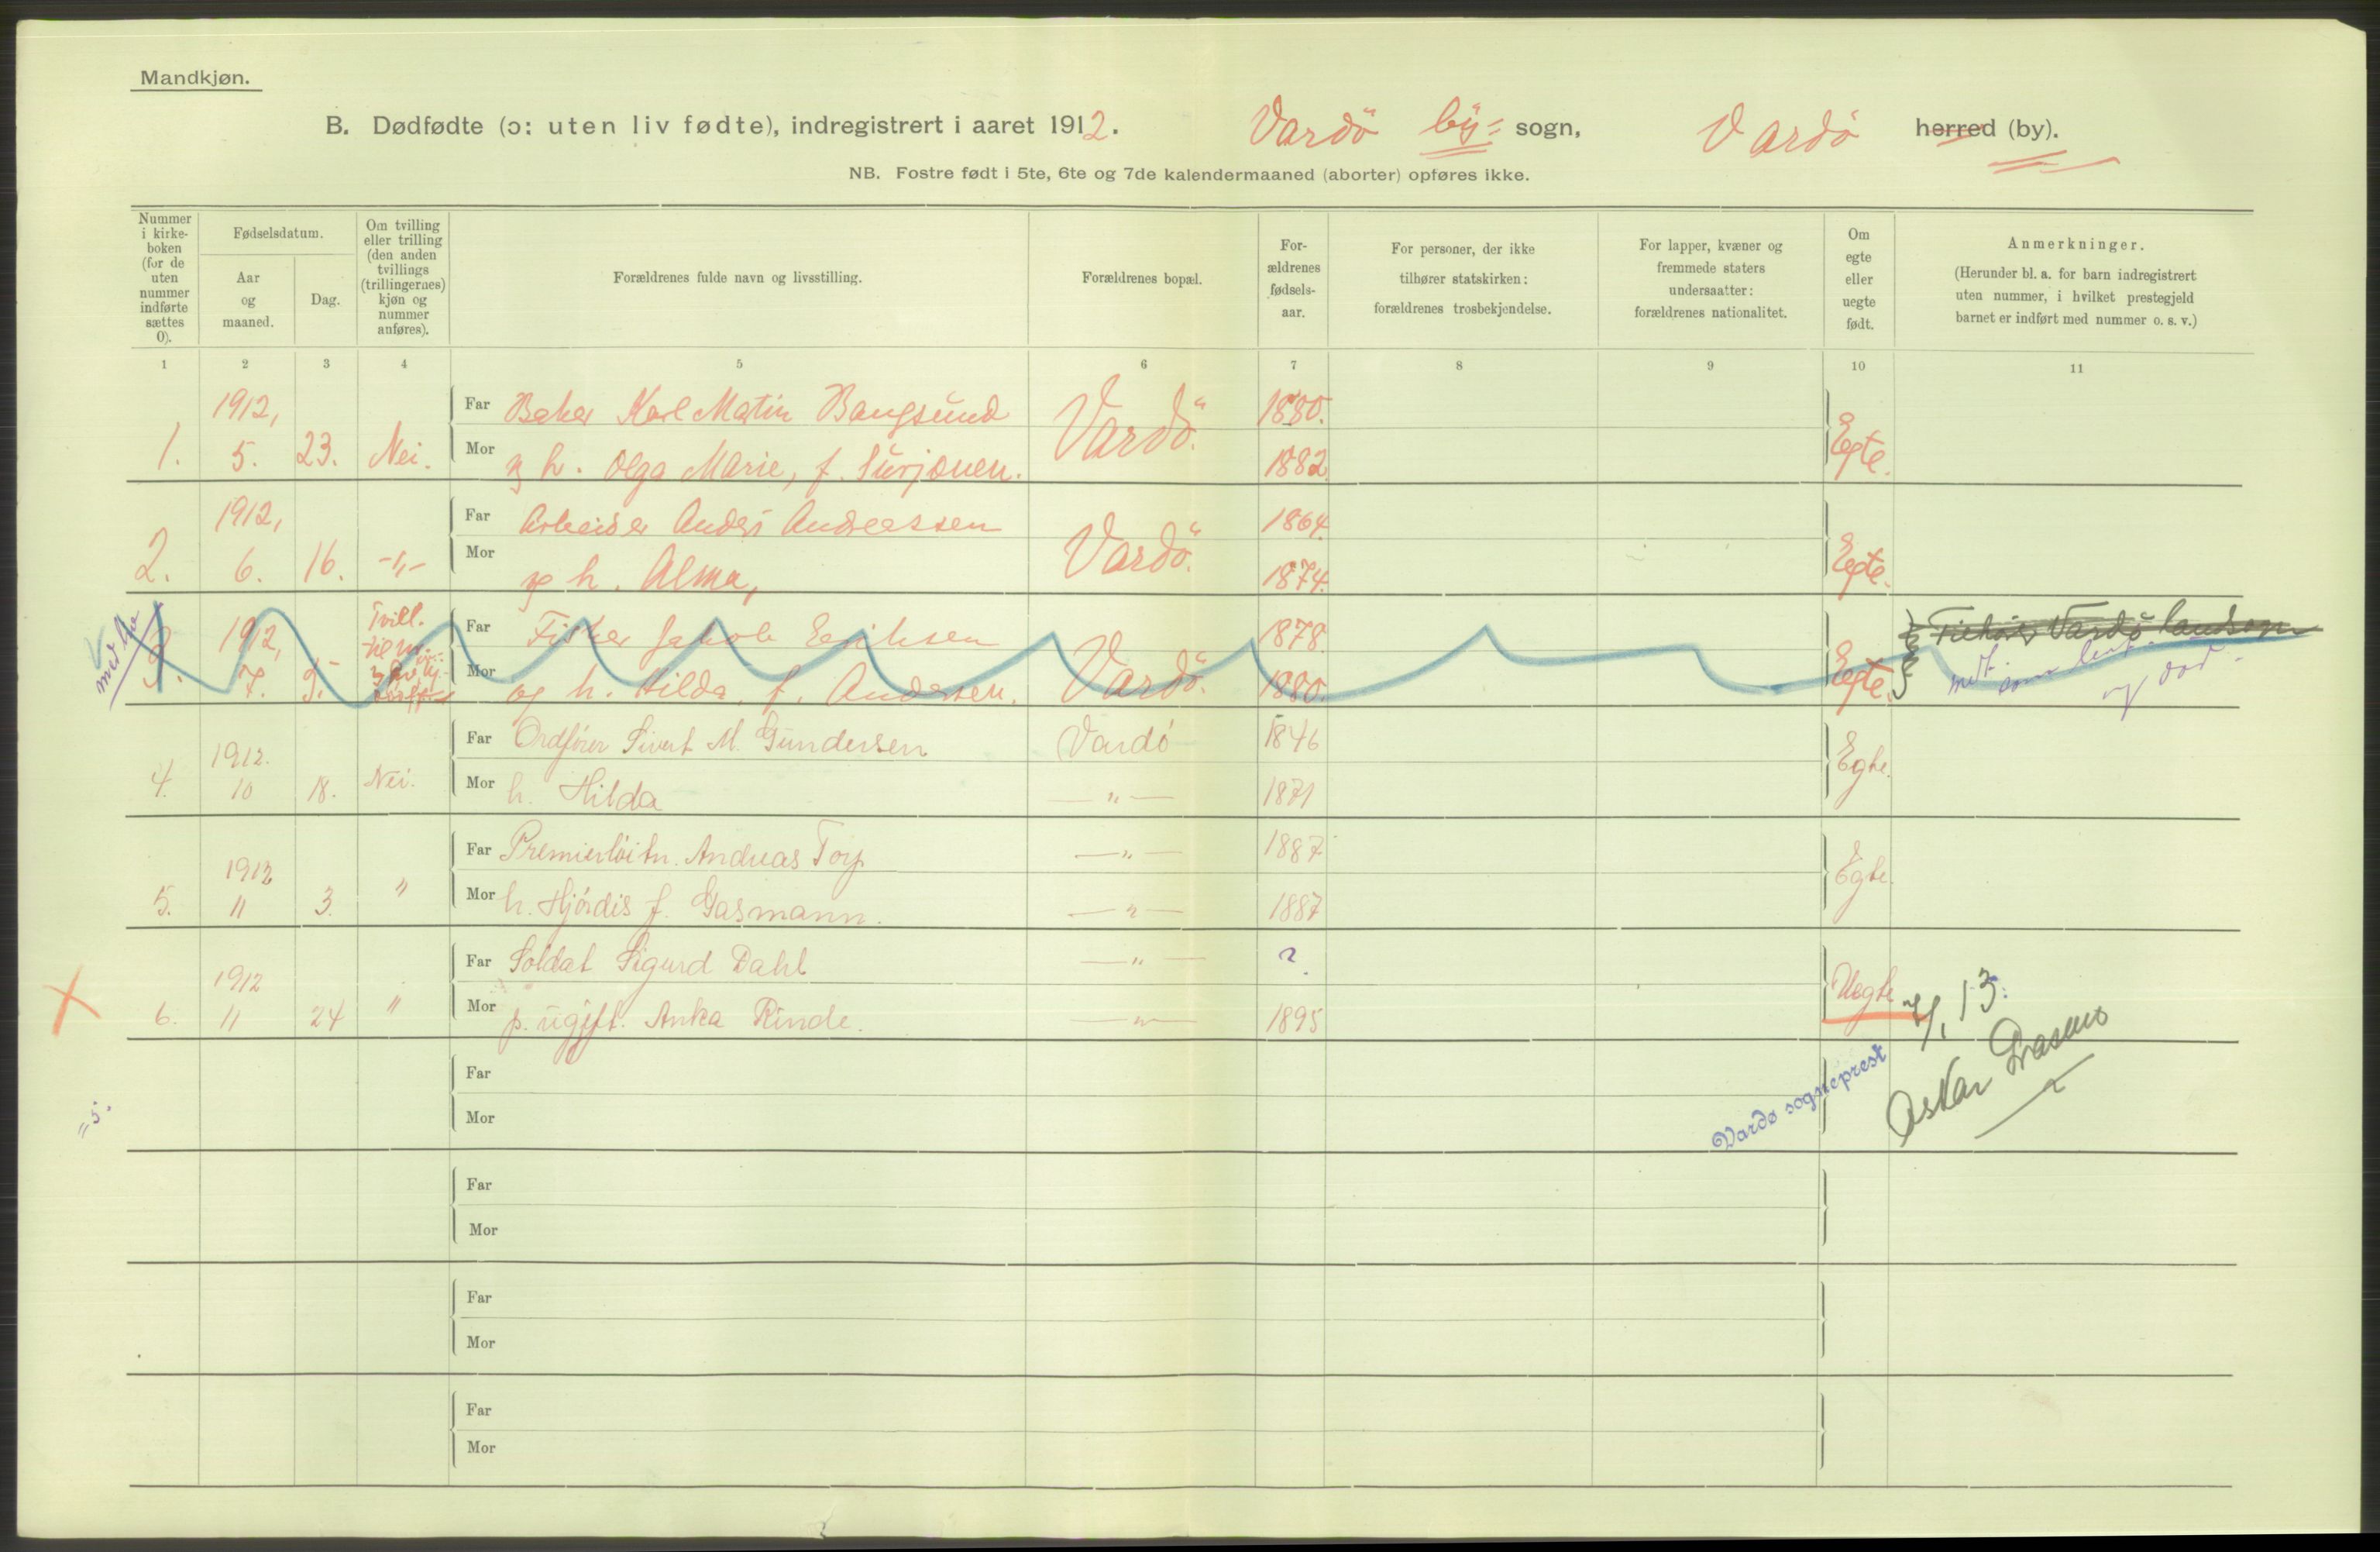 Mandkjøn.
B. Dødfødte (ɔ: uten liv fødte), indregistrert i aaret 1912. Vardö by- sogn, Vardö herred (by).
NB. Fostre født i 5te, 6te og 7de kalendermaaned (aborter) opføres ikke.
Nummer i kirke-boken (for de uten nummer indførte sættes 0).
Fødselsdatum.
Aar og maaned.
Dag.
Om tvilling eller trilling (den anden tvillings (trillingernes) kjøn og nummer anføres).
Forældrenes fulde navn og livsstilling.
Forældrenes bopæl.
For-ældrenes fødsels-aar.
For personer, der ikke tilhører statskirken: forældrenes trosbekjendelse.
For lapper, kvæner og fremmede staters undersaatter: forældrenes nationalitet.
Om egte eller uegte født.
Anmerkninger.
(Herunder bl. a. for barn indregistrert uten nummer, i hvilket prestegjeld barnet er indført med nummer o. s. v.)
1 2 3 4 5 6 7 8 9 10 11
1912, Far Baker Karl Martin Bangsund Vardö. 1880.
1. 5. 23. Nei. Mor og h. Olga Marie, f. 1882 Egte.
1912, Far Arbeider Anders Andreassen Vardö. 1864.
2. 6. 16. -"- Mor og h. Alma, 1874. Egte.
1912, Tvill. Far Fisker Jakob Eriksen Vardö. 1878. Tilhører Vardö landsogn
3. 7. Mor og h. Hilda, f. Andersen. 1880. Egte. og död
1912. Far Ordfører Sivert M. Gundersen Vardö 1846
4. 10 18. Nei. Mor h. Hilda —"— 1871 Egte.
1912 Far Premierløitn. Andreas Torp —"— 1887
5. 11 3. " Mor h. Hjördis f. Gasmann. —"— 1887 Egte.
1912 Far Soldat Sigurd Dahl —"— ?
6. 11 24 " Mor p. ugift. Anka Rinde. —"— 1895 Uegte
13.
Far
Mor
Vardø sogneprest
Oskar
Far
Mor
Far
Mor
Far
Mor